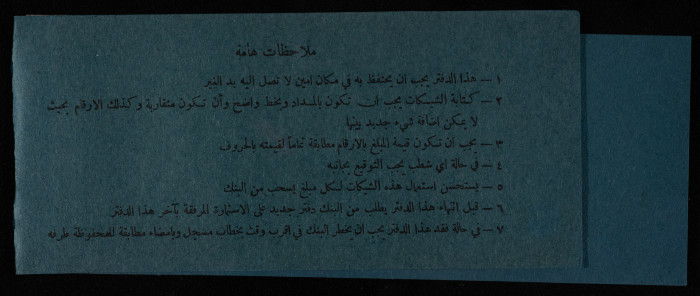 ملاحظات هامة
١ — هذا الدفتر يجب ان يحتفظ به في مكان امين لا تصل اليه يد الغير
٢ — كتابة الشيكات يجب ان تكون بالمداد وبخط واضح وأن تكون متقاربة وكذلك الارقام بحيث
لا يمكن اضافة شيء جديد بينها
٣ — يجب ان تكون قيمة المبلغ بالارقام مطابقة تماماً لقيمته بالحروف
٤ — في حالة اي شطب يجب التوقيع بجانبه
٥ — يستحسن استعمال هذه الشيكات لكل مبلغ يسحب من البنك
٦ — قبل انتهاء هذا الدفتر يطلب من البنك دفتر جديد على الاستمارة المرفقة بآخر هذا الدفتر
٧ — في حالة فقد هذا الدفتر يجب ان يخطر البنك في اقرب وقت بخطاب مسجل وبامضاء مطابقة للمحفوظة طرفه